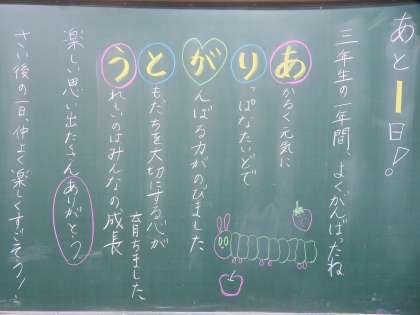 あと1日!
三年生の一年間、よくがんばったね
あかるく元気に
りっぱなたいどで
がんばる力がのびました
ともだちを大切にする心が
育ちました
うれしいのはみんなの成長
楽しい思い出たくさんありがとう
さい後の一日、仲よく楽しくすごそう!